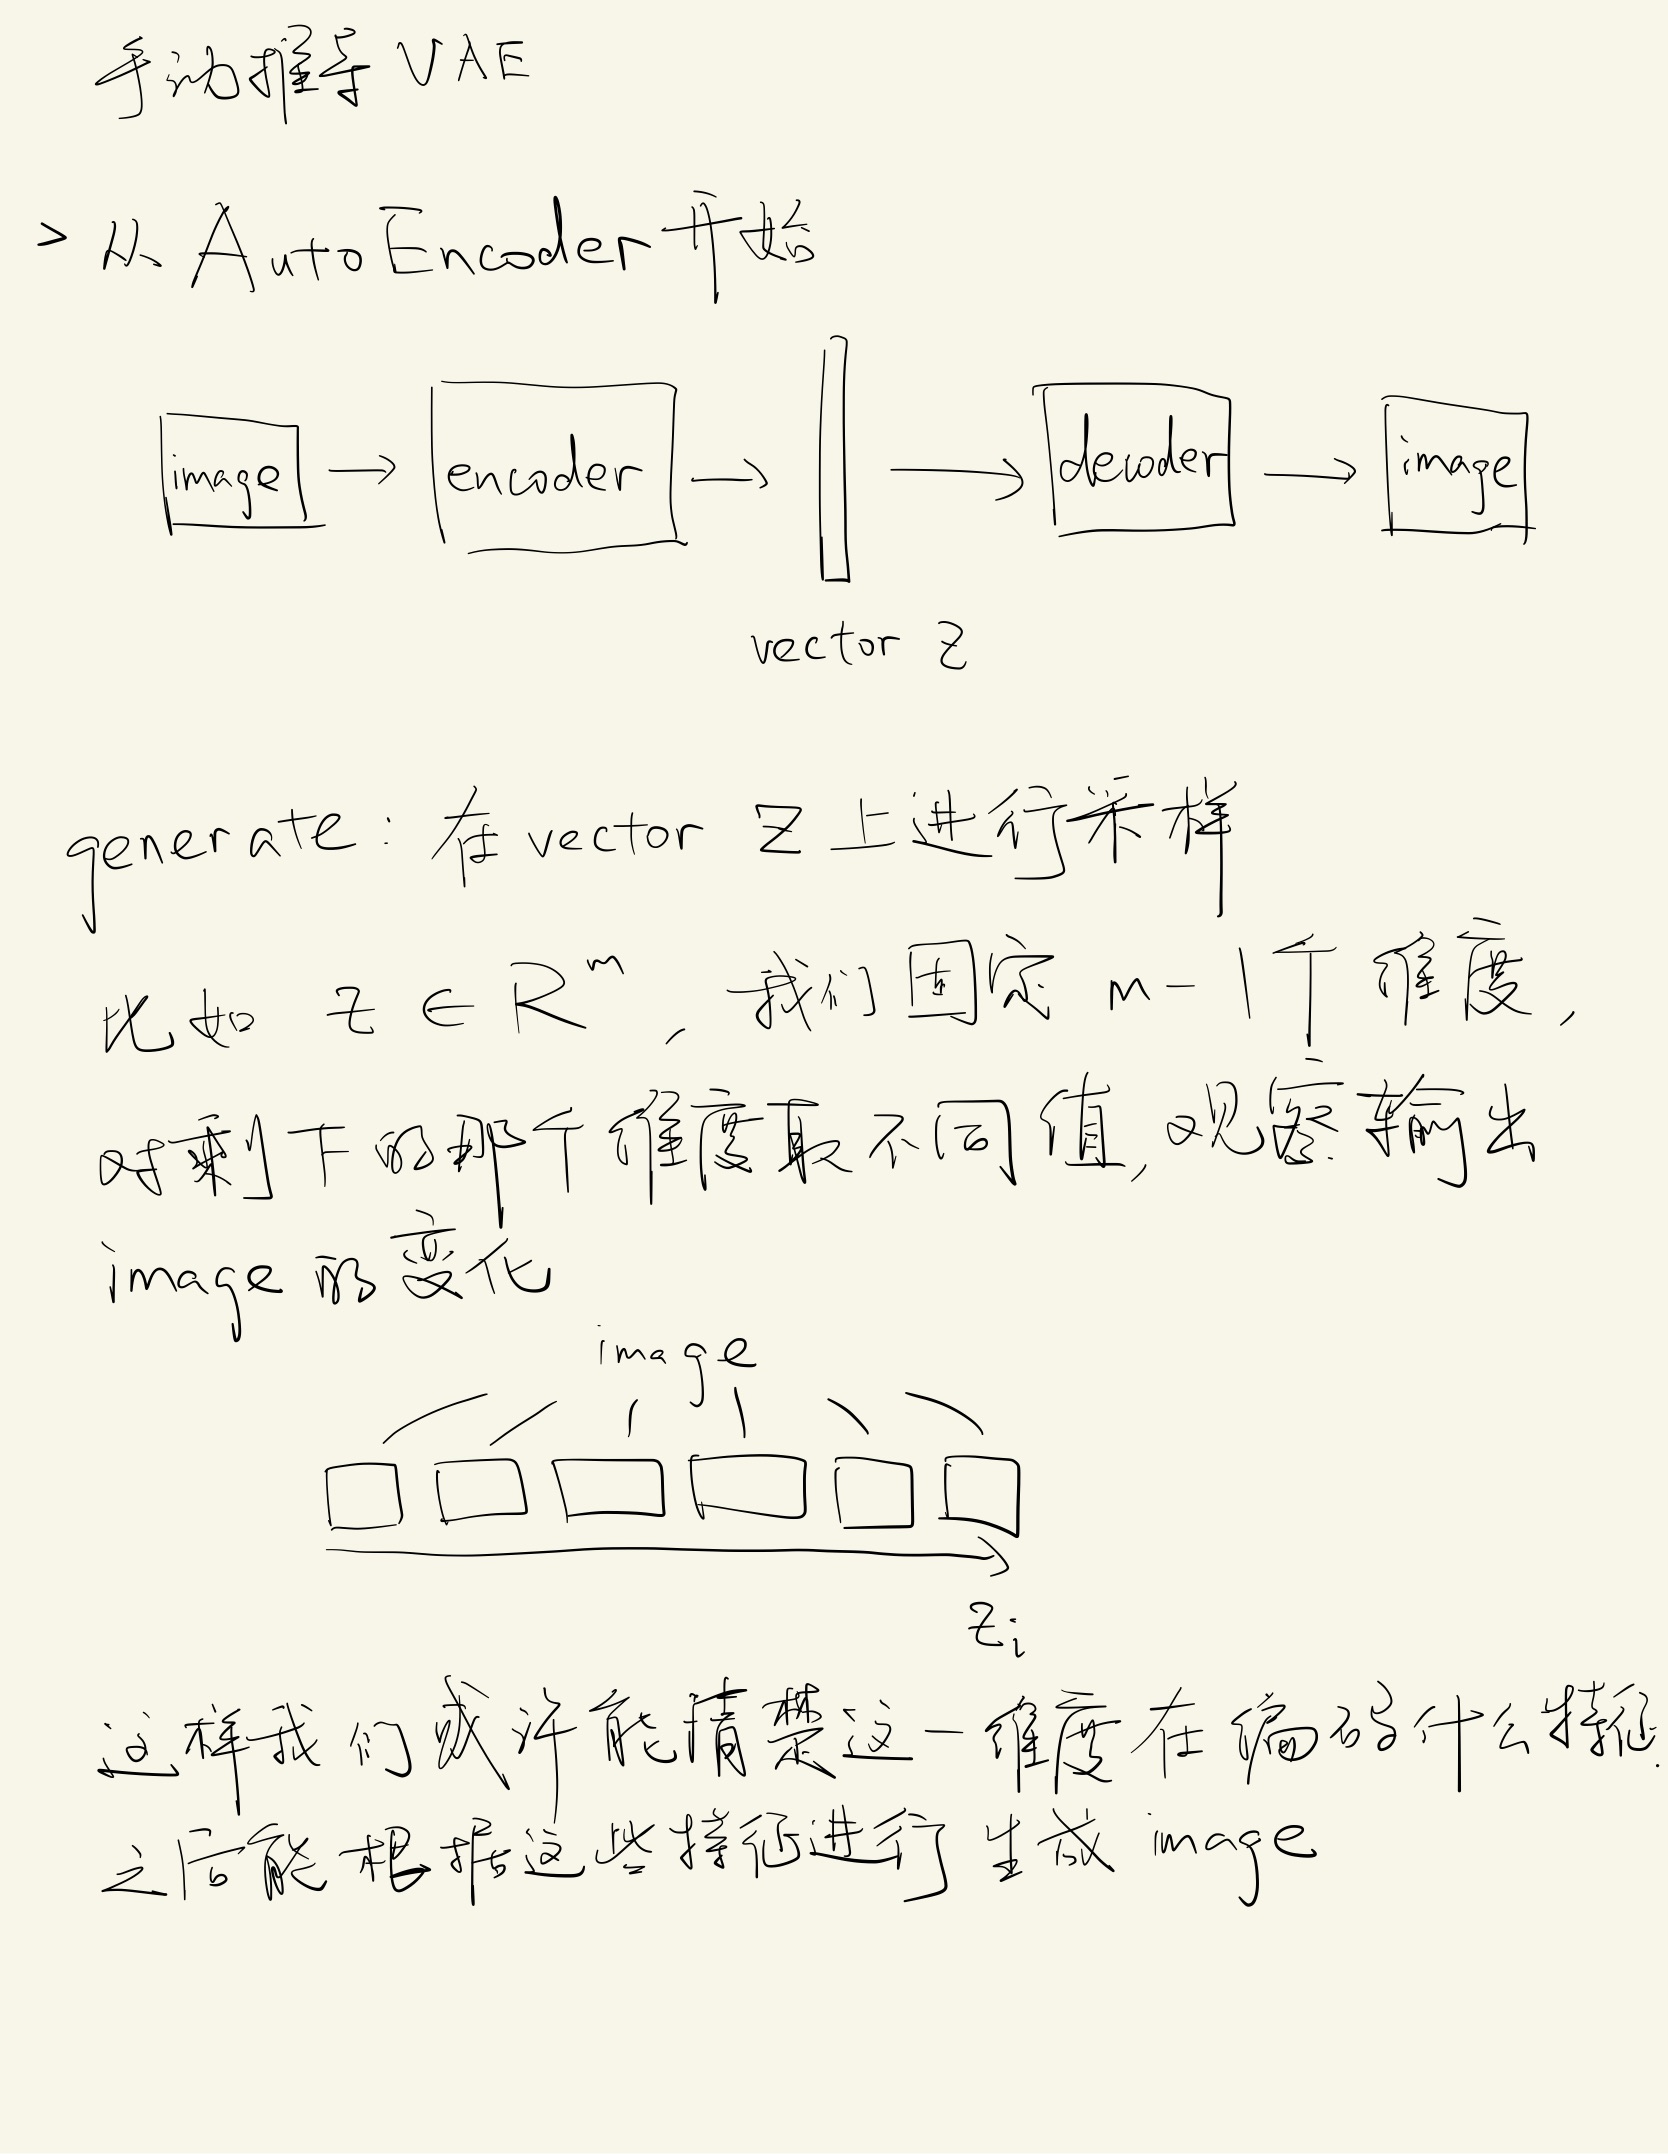 手动推导 VAE
> 从 AutoEncoder 开始
image → encoder → → decoder → image
vector z
generate: 在 vector z 上进行采样
比如 z ∈ R^m, 我们固定 m-1个维度,
对剩下的那个维度取不同值, 观察输出
image 的变化
image
z_i
这样我们或许能清楚这一维度在编码什么特征.
之后能根据这些特征进行生成 image